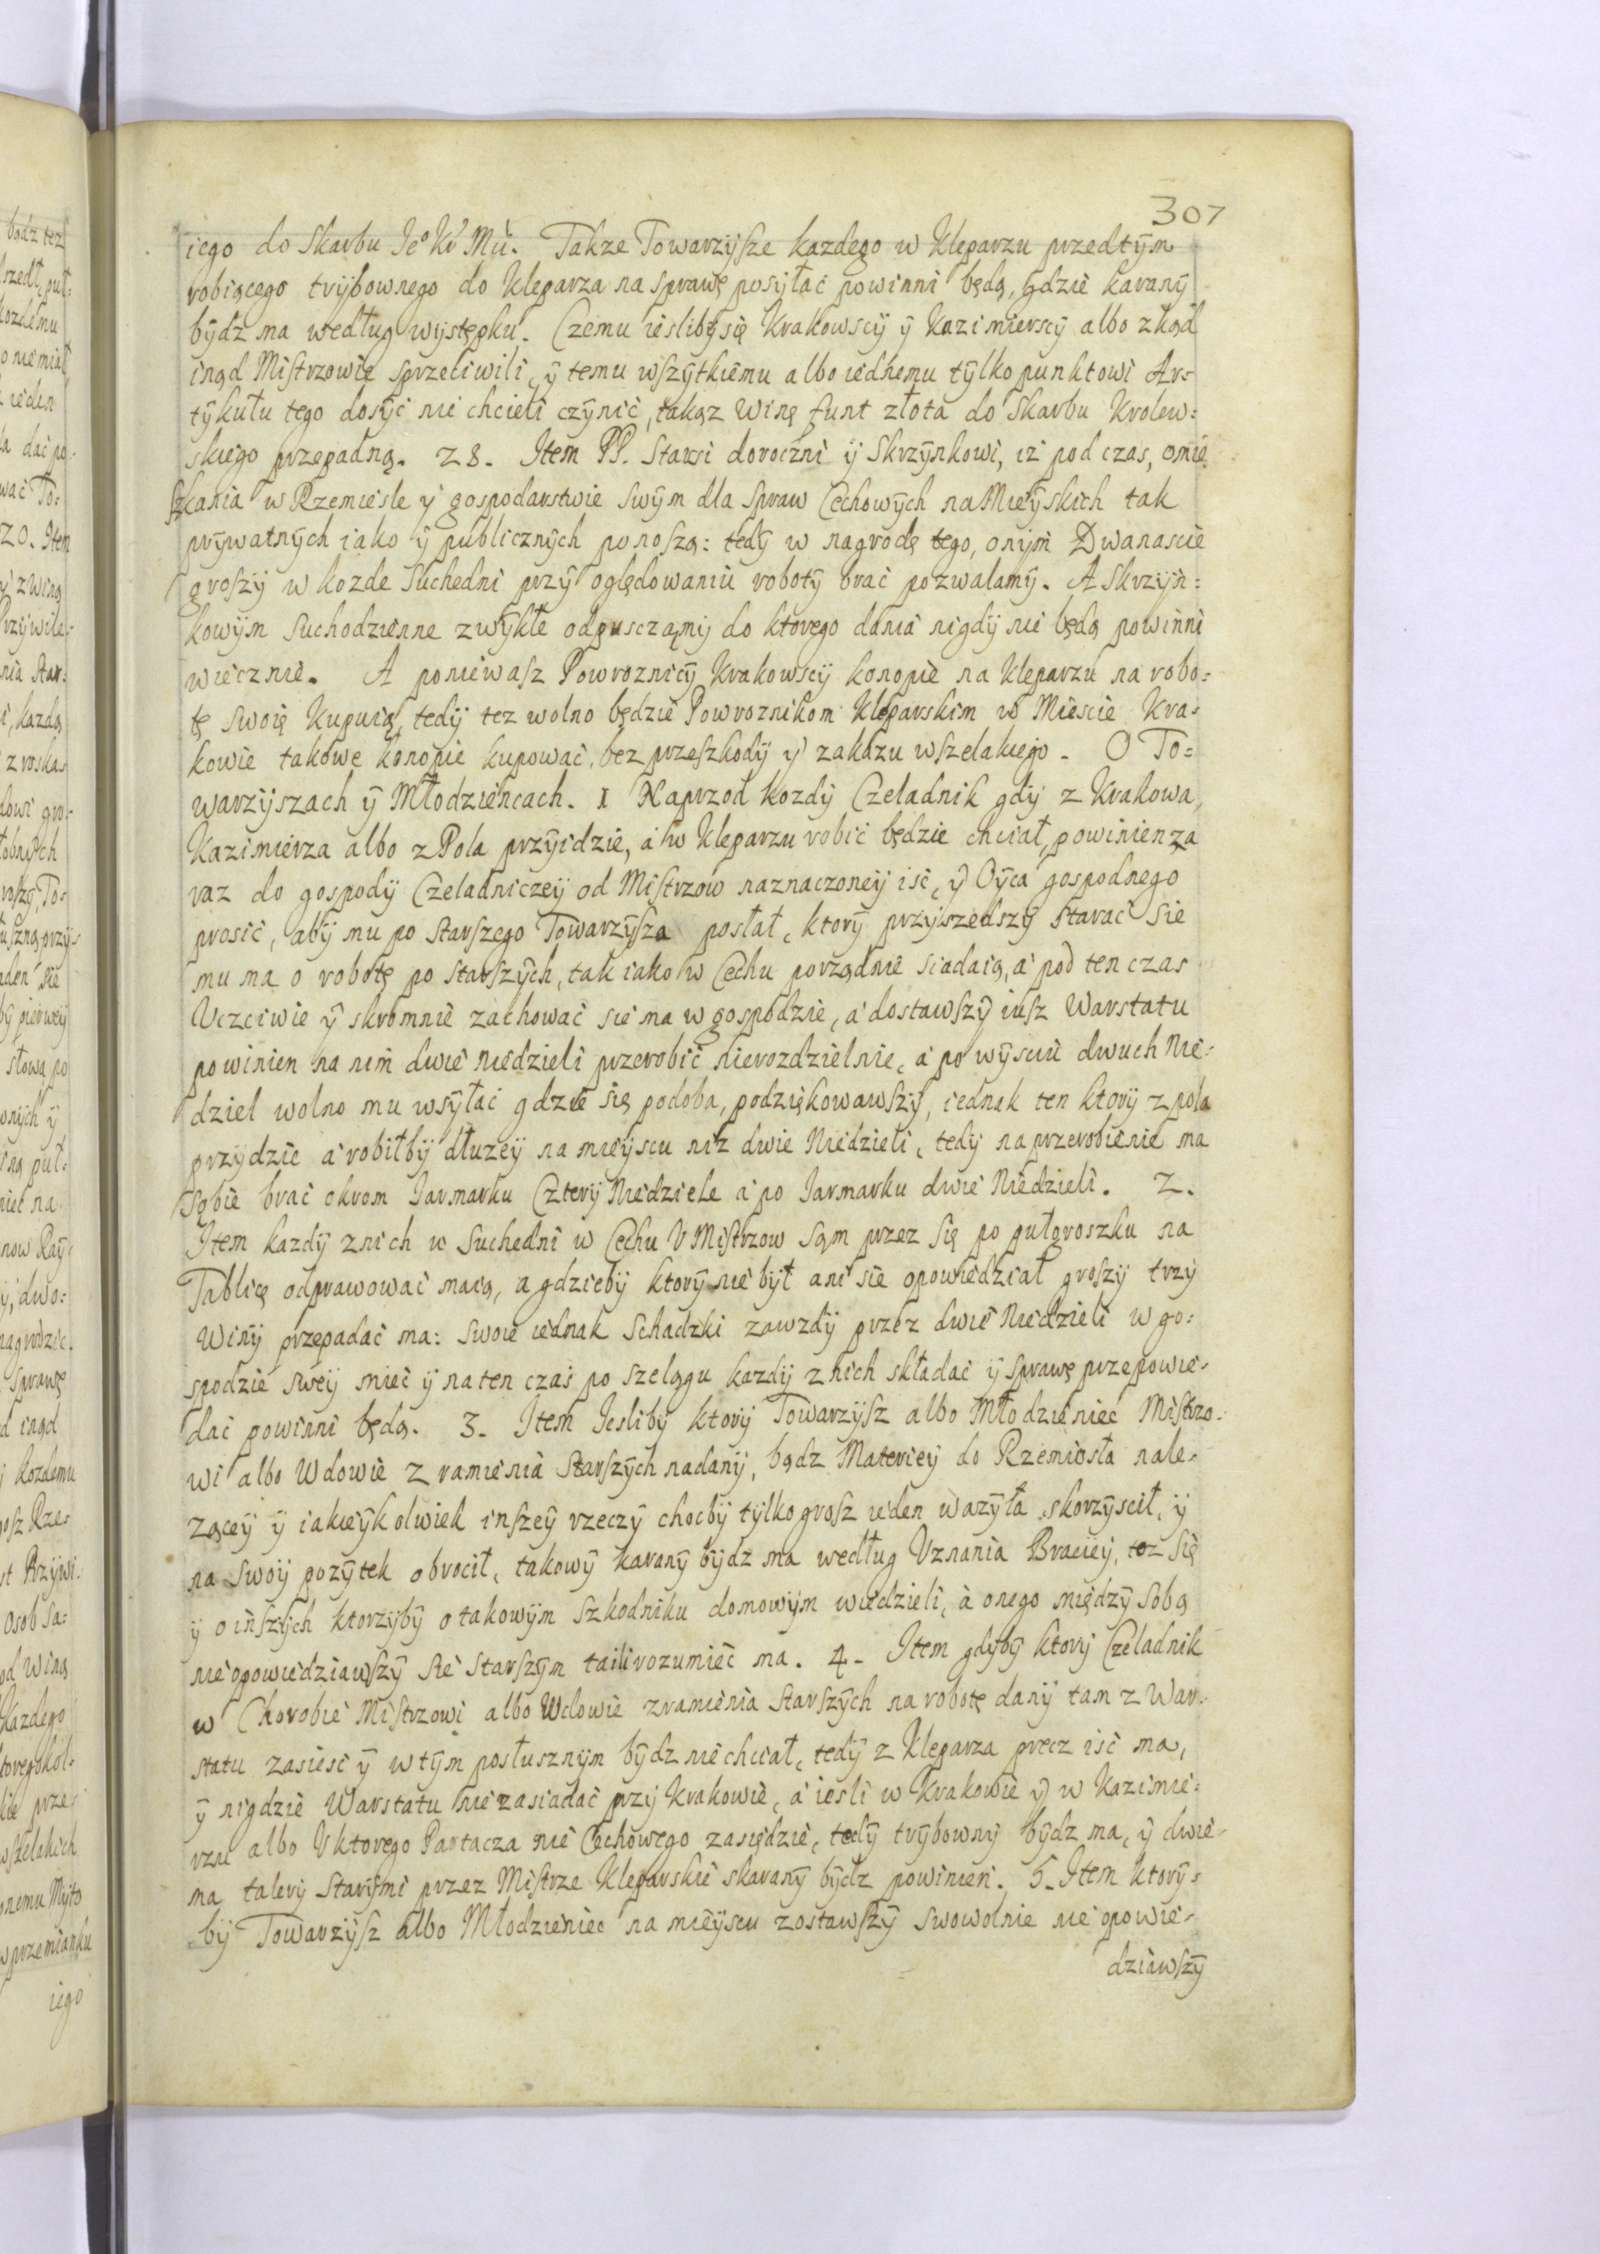 307
iego do Skarbu Ieº Kr Mci. Takze Towarzysze kazdego w Kleparzu przedtÿm
robiącego trÿbownego do Kleparza na sprawę posyłać powinni będą, gdzie karanÿ
bÿdz ma według występku. Czemu iesliby się Krakowscÿ ÿ Kazimierscÿ albo zkąd
inąd Mistrzowie sprzeciwili, ÿ temu wszÿtkiemu albo iednemu tÿlko punktowi Ar=
tÿkułu tego dosÿć nie chcieli czÿnić, takąz Winę funt złota do Skarbu Krolew=
skiego przepadną. 28. Item PP. Starsi doroczni ÿ Skrzÿnkowi, iż pod czas, omie
szkania w Rzemieśle y gospodarstwie swÿm dla spraw Cechowÿch na Mieÿskich tak
prÿwatnÿch iako ÿ publicznÿch ponoszą: tedÿ w nagrodę tego, onÿm Dwanascie
groszy w kozde Suchedni przÿ oględowaniu robotÿ brać pozwalamÿ. A Skrzÿn=
kowÿm Suchodzienne zwÿkłe odpusczamÿ do ktorego dania nigdÿ nie będą powinni
wiecznie. A poniewasz Powroznicÿ Krakowscÿ konopie na Kleparzu na robo=
tę swoię kupuią, tedÿ tez wolno będzie Powroznikom Kleparskim w Miescie Kra=
kowie takowe konopie kupować, bez przeszkodÿ y zakazu wszelakiego. O To=
warzÿszach ÿ Młodziencach. 1 Naprzod kozdÿ Czeladnik gdÿ z Krakowa,
Kazimierza albo z Pola przÿidzie, a w Kleparzu robić będzie chciał, powinien za
raz do gospodÿ Czeladniczeÿ od Mistrzow naznaczoneÿ iść, ÿ Oÿca gospodnego
prosić, abÿ mu po starszego Towarzÿsza posłał, ktorÿ przÿszedszÿ starać sie
mu ma o robotę po starszÿch, tak iako w Cechu porządnie siadaią, a pod ten czas
Uczciwie ÿ skromnie zachować sie ma w gospodzie, a dostawszÿ iusz Warstatu
powinien na nim dwie niedzieli przerobić nierozdzielnie, a po wÿsciu dwuch Nie=
dziel wolno mu wsÿłać gdzie się podoba, podziękowawszÿ, iednak ten ktorÿ z pola
przÿdzie a robiłbÿ dłuzeÿ na mieÿscu niz dwie Niedzieli, tedÿ na przerobienie ma
sobie brać okrom Iarmarku Czterÿ Niedziele a po Iarmarku dwie Niedzieli. 2.
Item kazdÿ znich w Suchedni w Cechu U Mistrzow sąm przez się po pułgroszku na
Tablicę odprawować maią, a gdziebÿ ktorÿ nie bÿł ani sie opowiedział groszÿ trzÿ
winÿ przepadać ma: swoie iednak Schadzki zawzdÿ przez dwie Niedzieli w go=
spodzie sweÿ mieć ÿ na ten czas po szelągu kazdÿ z nich składać ÿ sprawę przepowie=
dać powinni będą. 3. Item Iesliby ktorÿ Towarzÿsz albo Młodzieniec Mistrzo=
wi albo Wdowie z ramienia Starszÿch nadanÿ, bądz Materieÿ do Rzemiosła nale=
zaceÿ ÿ iakieÿkolwiek inszeÿ rzeczÿ chocbÿ tÿlko grosz ieden wazÿła skorzÿscił, ÿ
na swoÿ pozÿtek obrocił, takowÿ karanÿ bÿdz ma według Uznania Bracieÿ, toz się
ÿ o inszÿch ktorzÿbÿ o takowÿm szkodniku domowÿm wiedzieli, a onego międzÿ sobą
nieopowiedziawszÿ sie Starszÿm taili rozumieć ma. 4. Item gdÿbÿ ktorÿ Czeladnik
w Chorobie Mistrzowi albo Wdowie zramienia Starszÿch na robotę danÿ tam z War=
statu zasieść ÿ w tÿm posłusznÿm bÿdz niechciał, tedÿ z Kleparza precz iść ma,
ÿ nigdzie Warstatu niezasiadać przÿ Krakowie, a iesli w Krakowie ÿ w Kazimie=
rzu albo U ktorego Partacza nie Cechowego zasiędzie, tedÿ trÿbownÿ bÿdz ma, ÿ dwie=
ma talerÿ starÿmi przez Mistrze Kleparskie skaranÿ bÿdz powinien. 5. Item ktorÿ=
bÿ Towarzÿsz albo Młodzieniec na mieÿscu zostawszÿ swowolnie nie opowie=
dziawszÿ